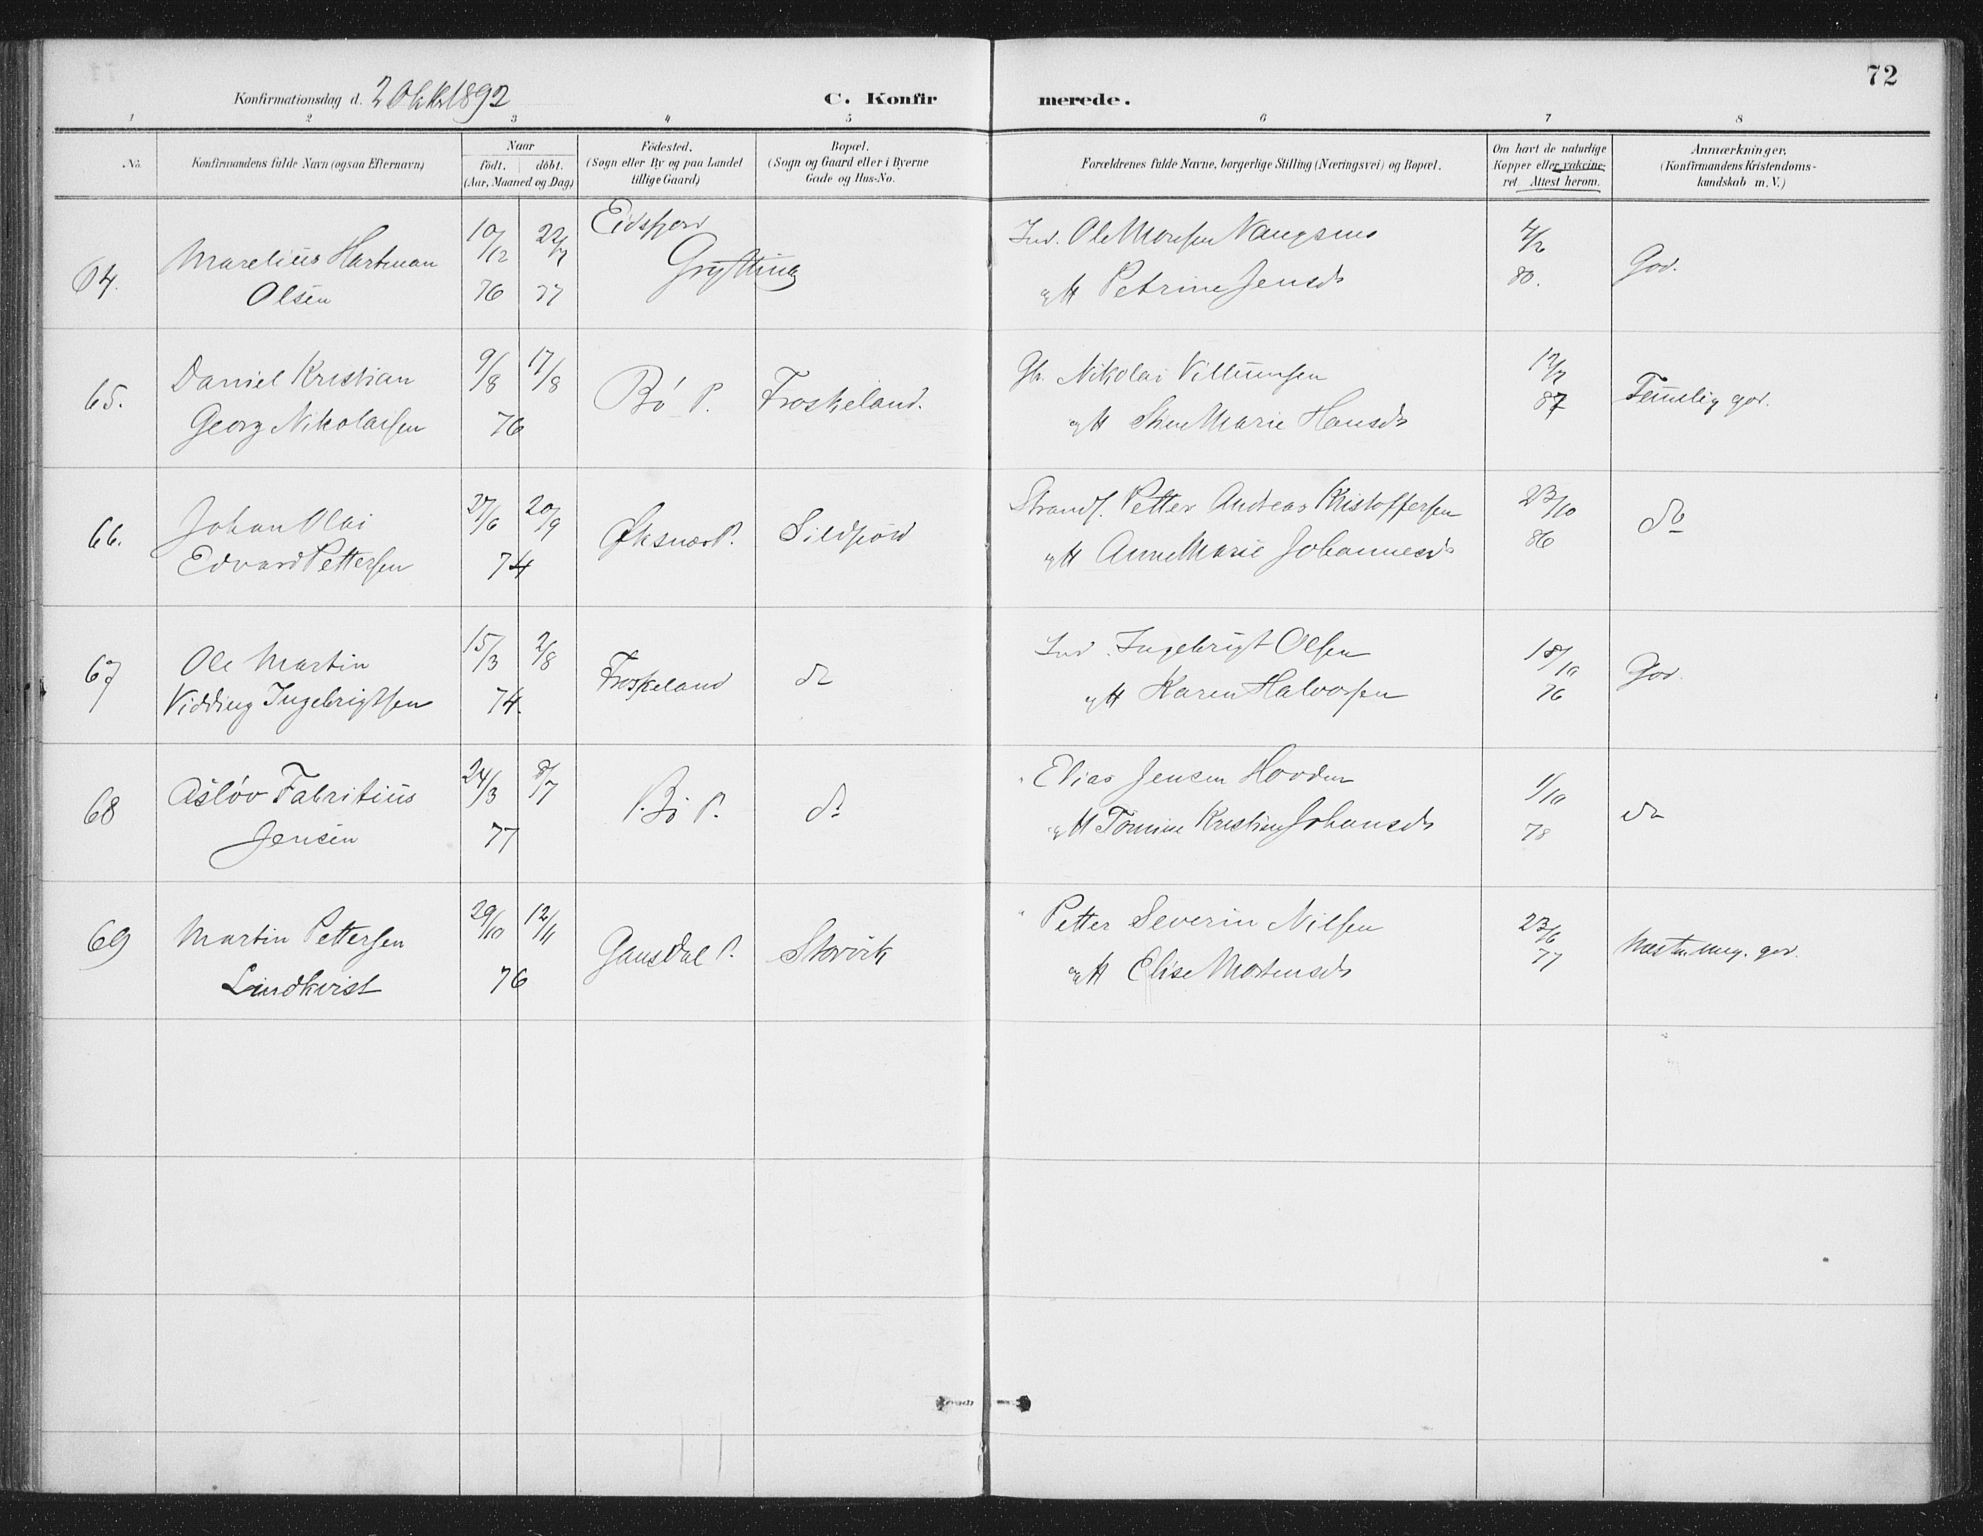 72
Konfirmationsdag d. 2 Oktbr 1892
C. Konfirmerede.
1 2 3 4 5 6 7 8
No.
Konfirmandens fulde Navn (ogsaa Efternavn)
Naar
født. døbt.
(Aar, Maaned og Dag)
Födested.
(Sogn eller By og paa Landet
tillige Gaard)
Bopæl.
(Sogn og Gaard eller i Byerne
Gade og Hus-No.
Forældrenes fulde Navne, borgerlige Stilling (Næringsvei) og Bopæl.
Om havt de naturlige
Kopper eller vakcine-
ret Attest herom.
Anmærkninger.
(Konfirmandens Kristendoms-
kundskab m. V.)
64.
Marelius Hartman
Olsen
10/12 76
22/7 77
Eidsfjord
Grytting
Ind. Ole Monsen
og H Petrine Jensd
4/2
80.
God.
65.
Daniel Kristian
Georg Nikolaisen
9/8 17/8
76
Bö P.
Froskeland.
Gb. Nikolai Villumsen
og H Stine Marie Hansd
12/7
87
Temelig god.
66.
Johan Olai
Edvard Pettersen
27/6 20/9
74
Øksnæs P.
Sildfjord
Strands. Petter Andreas Kristoffersen
og H Anne Marie Johannesd
23/10
86
do
67
Ole Martin
Vidding Ingebrigtsen
15/3 2/8
74.
Froskeland
do
Ind. Ingebrigt Olsen
og H Karen Halvorsen
18/10
76
God.
68
Asløv Fabritius
Jensen
24/3 8/7
77
Bö P.
do
" Elias Jensen Hovden
og H Tomine Kristine Johansd
1/10
78
do
69
Martin Pettersen
Lindkvist
29/10 12/11
76
Gausdal P.
Storvik
" Petter Severin Nilsen
og H Elise Mortensd
23/6
77
Næsten meg. god.